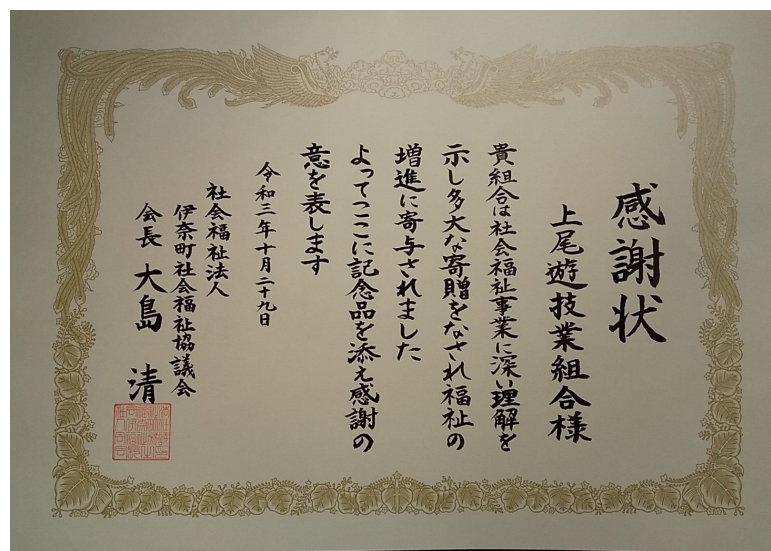 感謝状
上尾遊技業組合様
貴組合は社会福祉事業に深い理解を
示し多大な寄贈をなされ福祉の
増進に寄与されました
よってここに記念品を添え感謝の
意を表します
令和三年十月二十九日
社会福祉法人
伊奈町社会福祉協議会
会長 大島 清